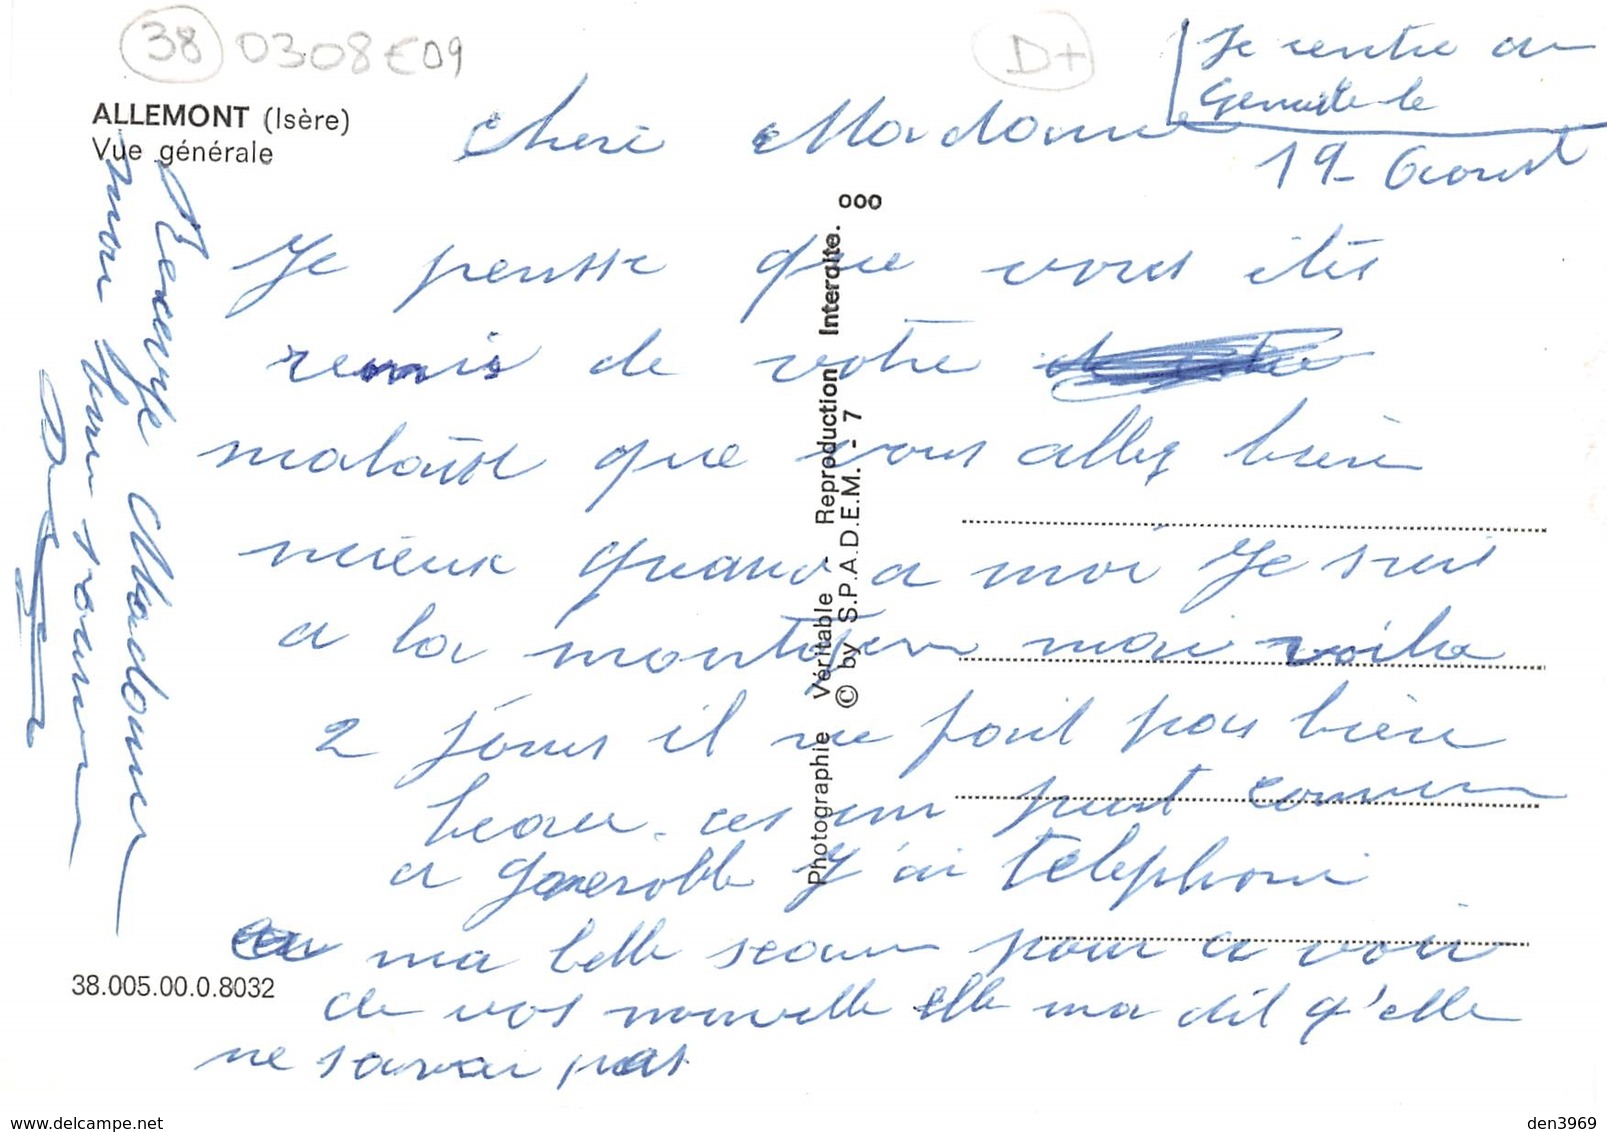 38 0308 € 09
D+
Je rentre au
le
19 - Aoust
ALLEMONT (Isère)
Vue générale
Cheré Madame
Je pensse que vous ètes
remis de votre
malaisse que vous allez bien
mieux quand a moi Je suis
a la montagne mai voila
2 jours il ne fait pas bien
beau. ces un peut comme
a Gareroble J'ai téléphoné
ma belle seour pour a voir
de vos nouvelle elle ma dit q'elle
ne savai pas
Recevez Madame
mon
ooo
Photographie Véritable - Reproduction Interdite.
© by S.P.A.D.E.M. - 7
38.005.00.0.8032
www.delcampe.net
den3969